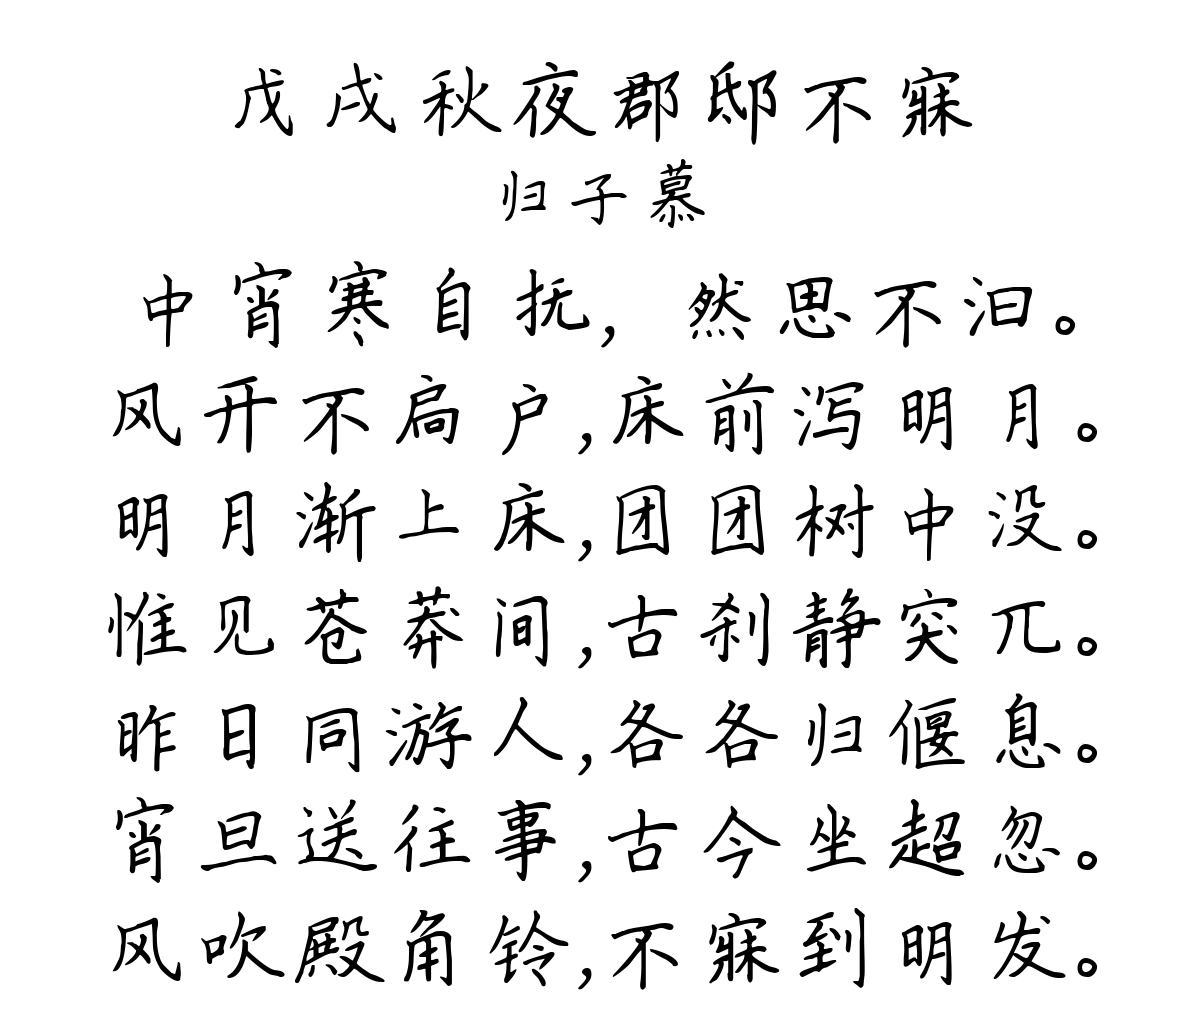 戊戌秋夜郡邸不寐
归子慕
中宵寒自抚，然思不汩。
风开不扃户，床前泻明月。
明月渐上床，团团树中没。
惟见苍莽间，古刹静突兀。
昨日同游人，各各归偃息。
宵旦送往事，古今坐超忽。
风吹殿角铃，不寐到明发。